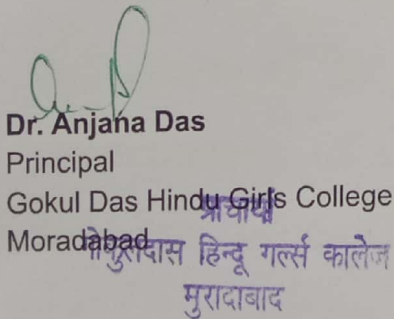 Dr. Anjana Das
Principal
Gokul Das Hindu Girls College
प्राचार्या
Moradabad
गोकुलदास हिन्दू गर्ल्स कालेज
मुरादाबाद